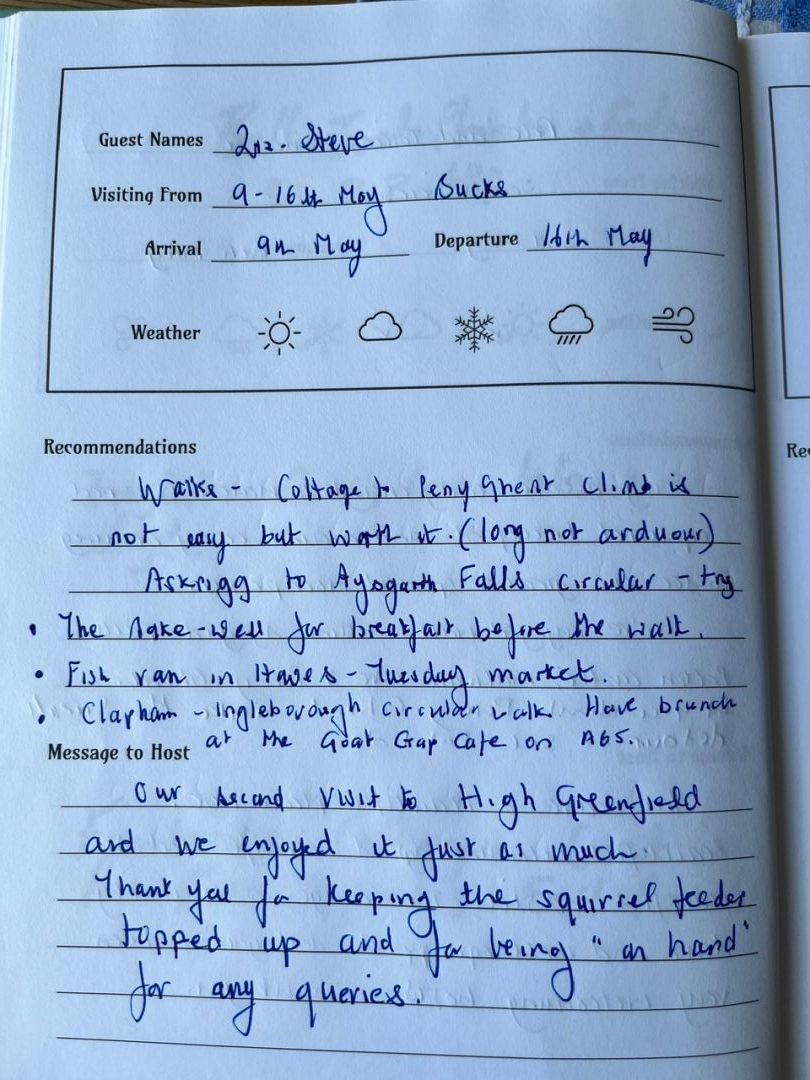 Guest Names Steve
Visiting From 9 - 16th May Bucks
Arrival 9th May Departure 16th May
Weather
Recommendations
Walks - Cottage to Penyghent climb is
not easy but worth it. (long not arduous)
Askrigg to Aysgarth Falls circular - try
• The Bake-well for breakfast before the walk.
• Fish van in Hawes - Tuesday market.
• Clapham - Ingleborough circular walk. Have brunch
at the Goat Gap Cafe on A65.
Message to Host
Our second visit to High Greenfield
and we enjoyed it just as much.
Thank you for keeping the squirrel feeder
topped up and for being "on hand"
for any queries.
Re